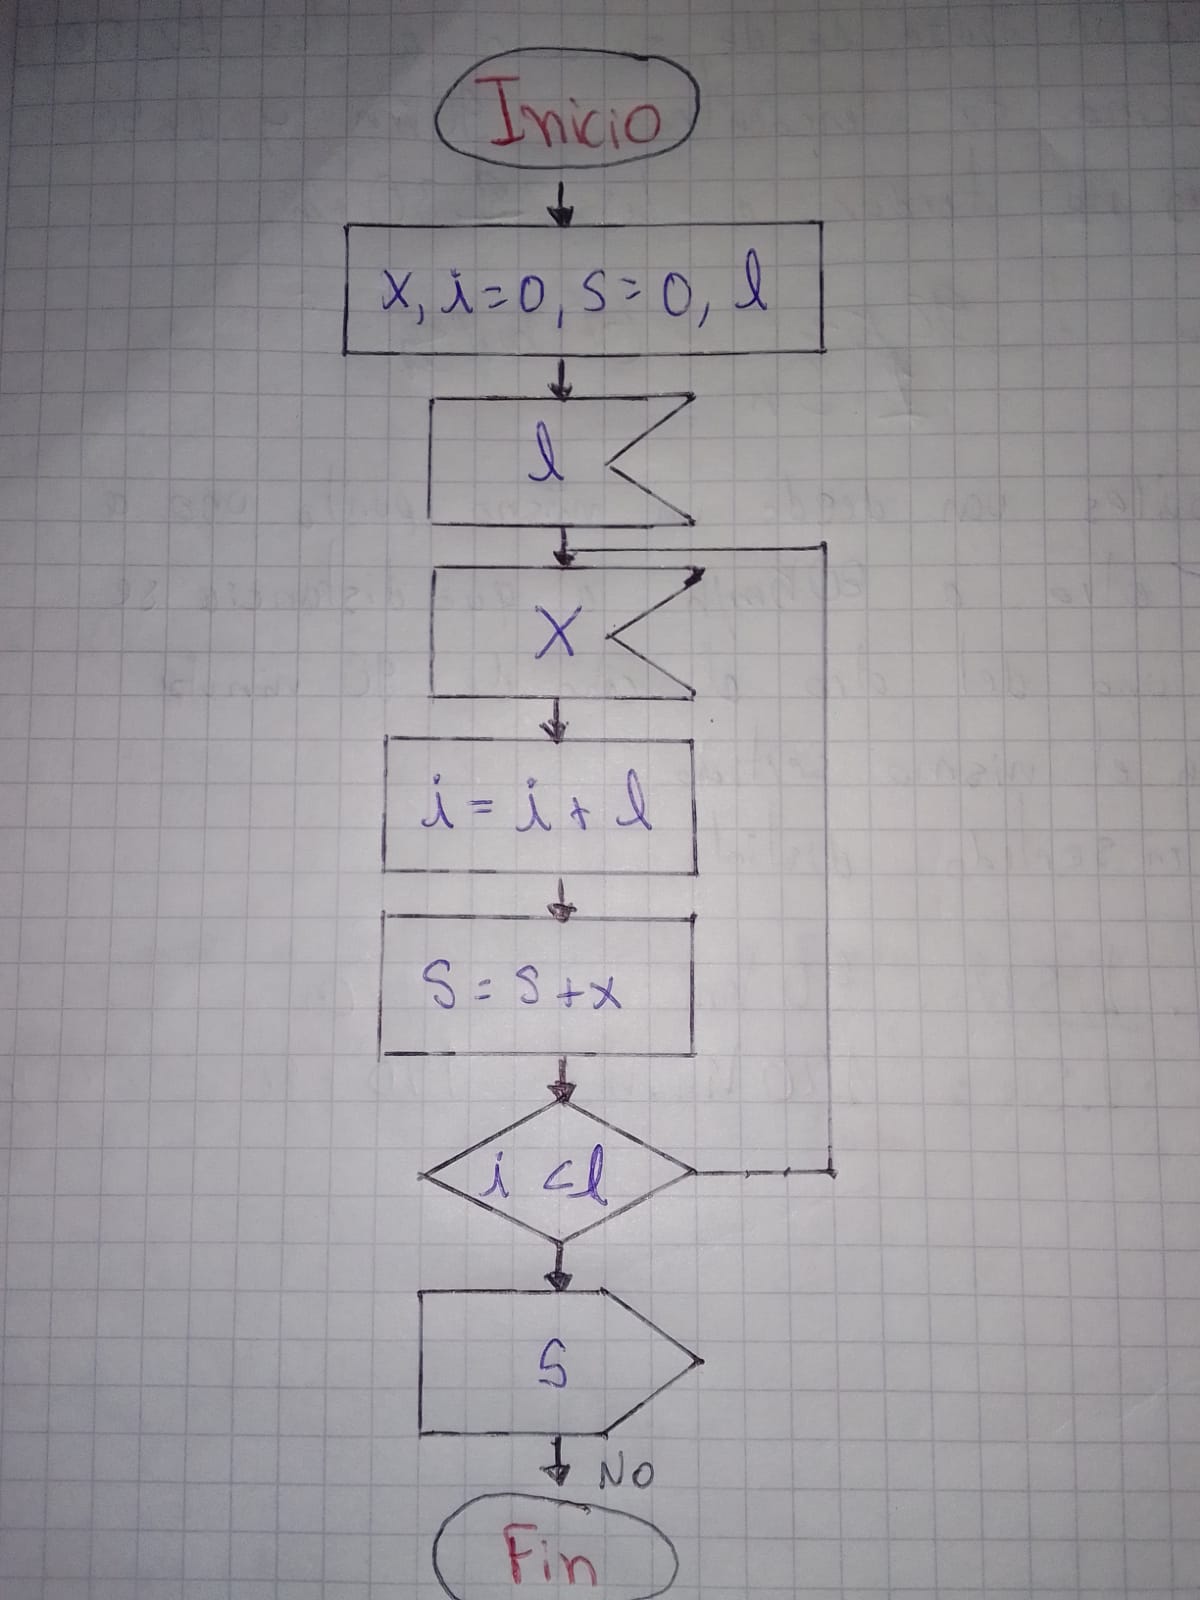 Inicio
x, i=0, s=0, l
l
X
i = i + l
S = S + x
i < l
S
NO
Fin